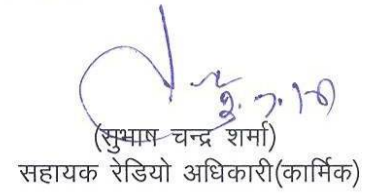 (सुभाष चन्द्र शर्मा)
सहायक रेडियो अधिकारी(कार्मिक)